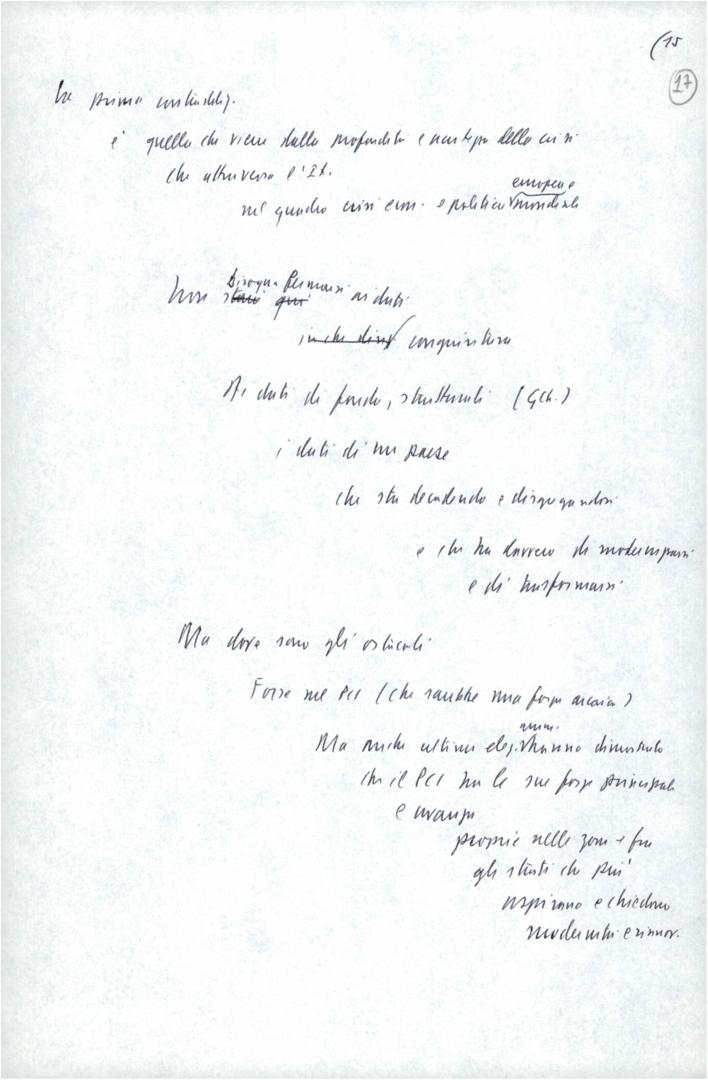 (15
17
La prima contraddiz.
è quella che viene dalla profondità e ampiezza della crisi
che attraversa l'It.
nel quadro crisi econ. e politica europea e mondiale
Non bisogna fermarsi ai dati
congiuntura
Ai dati di fondo, strutturali (Gch.)
i dati di un paese
che sta decadendo e disgregandosi
e che ha davvero di modernizzarsi
e di trasformarsi
Ma dove sono gli ostacoli
Forse nel PCI (che sarebbe una forza arcaica)
Ma anche ultime elez. amm. hanno dimostrato
che il PCI ha le sue forze principali
e avanza
proprio nelle zone e fra
gli strati che più
aspirano e chiedono
modernità e rinnov.